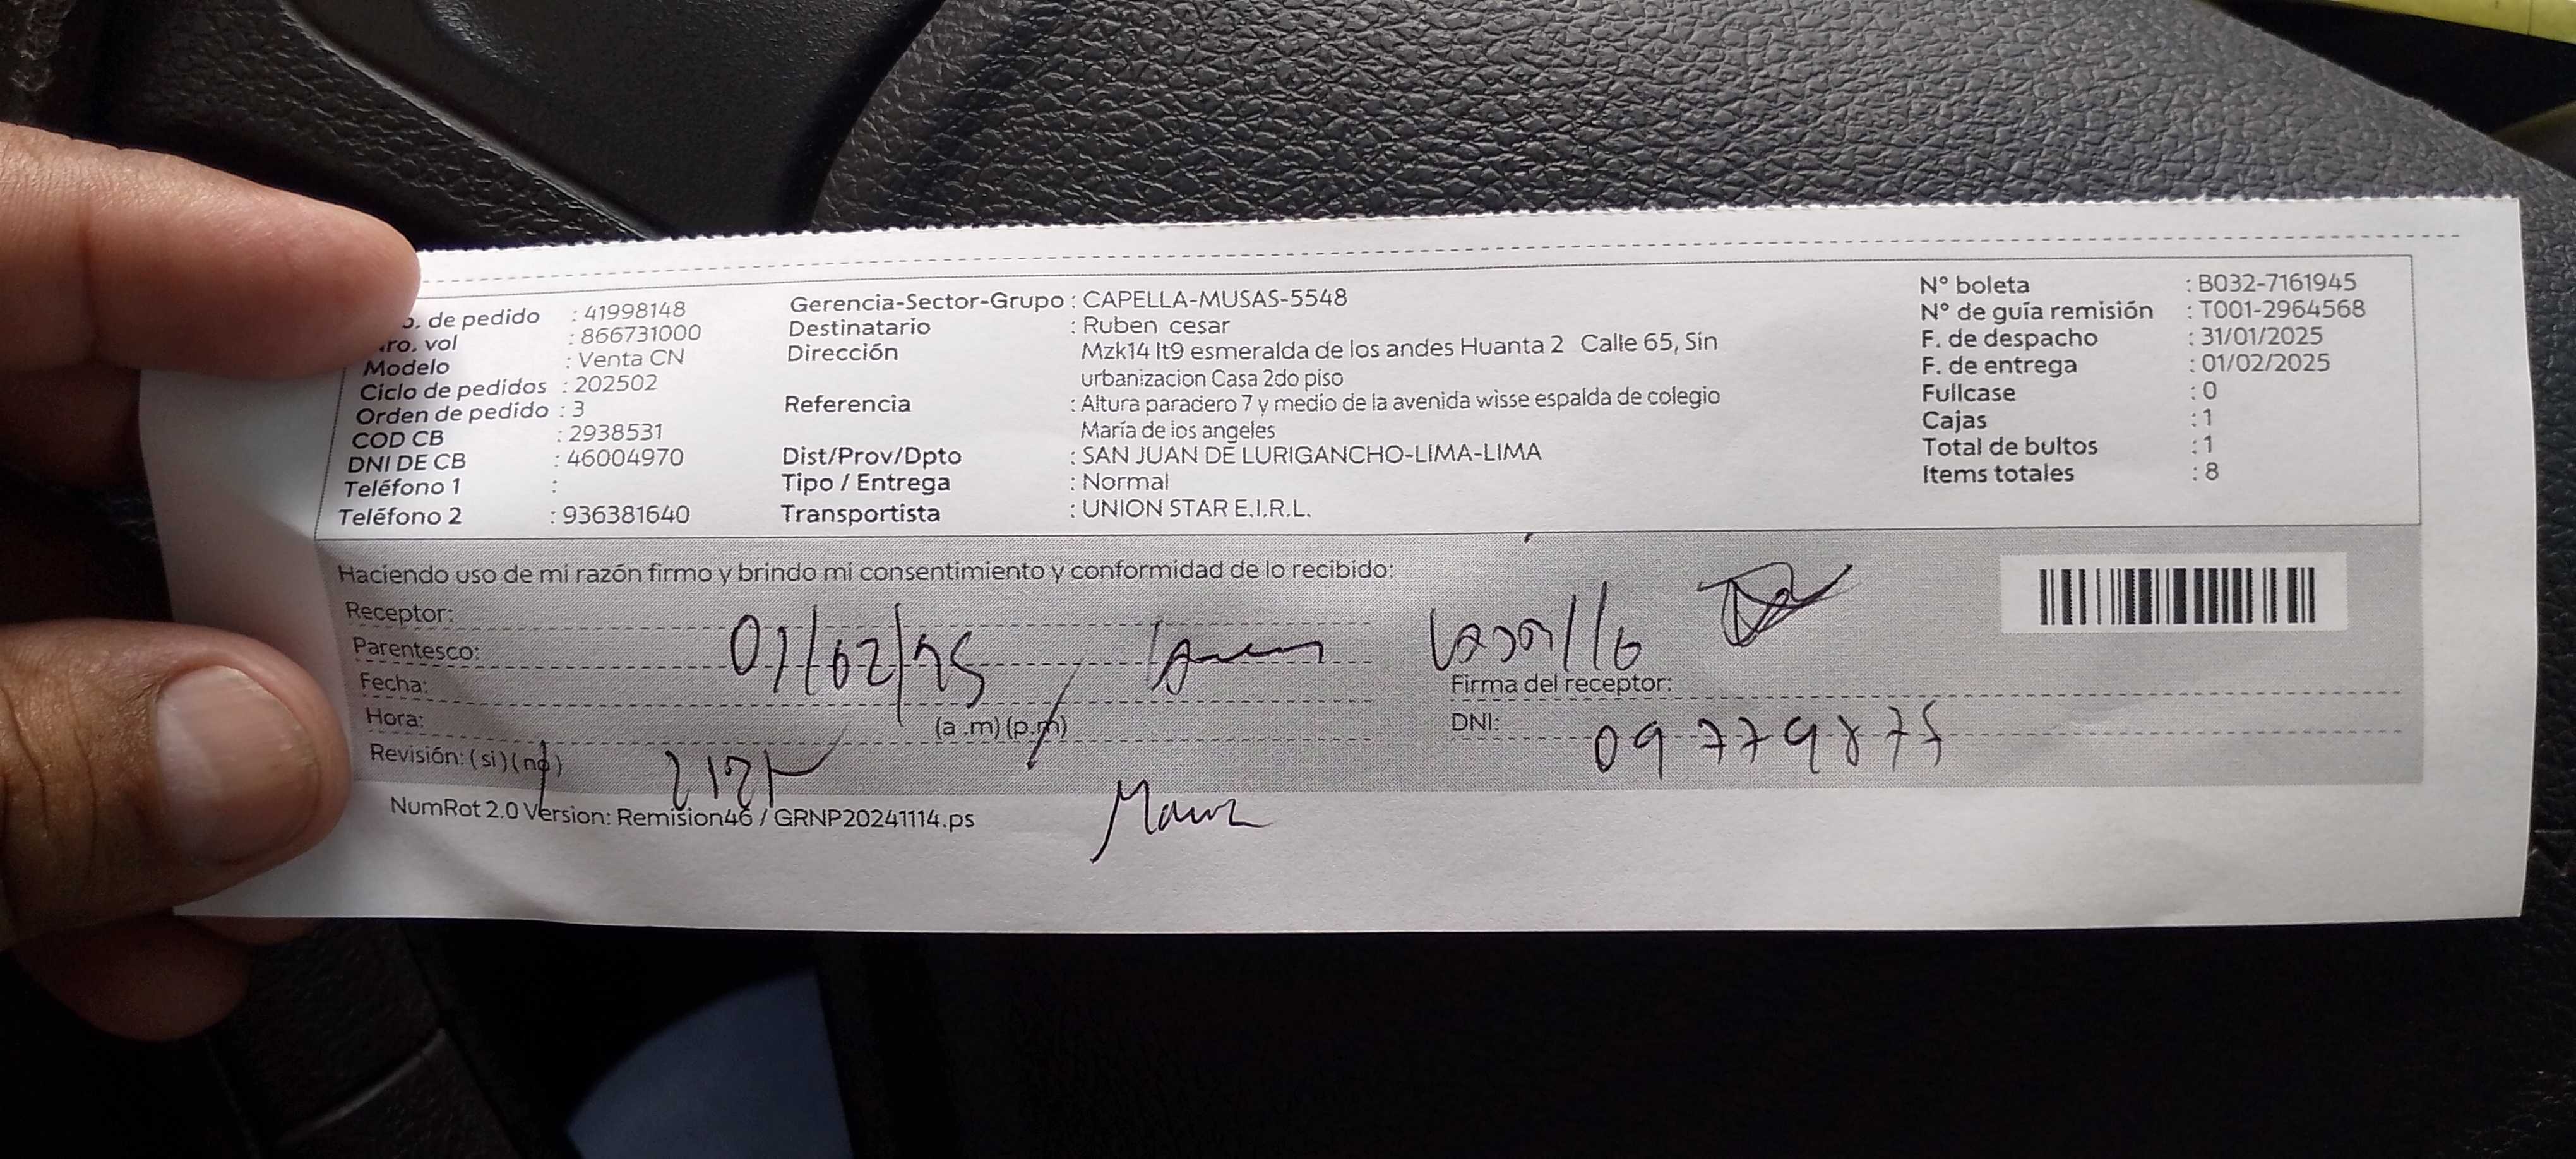 o. de pedido : 41998148
ro. vol : 866731000
Modelo : Venta CN
Ciclo de pedidos : 202502
Orden de pedido : 3
COD CB : 2938531
DNI DE CB : 46004970
Teléfono 1 :
Teléfono 2 : 936381640
Gerencia-Sector-Grupo : CAPELLA-MUSAS-5548
Destinatario : Ruben cesar
Dirección Mzk14 lt9 esmeralda de los andes Huanta 2 Calle 65, Sin
urbanizacion Casa 2do piso
Referencia : Altura paradero 7 y medio de la avenida wisse espalda de colegio
María de los angeles
Dist/Prov/Dpto : SAN JUAN DE LURIGANCHO-LIMA-LIMA
Tipo / Entrega : Normal
Transportista : UNION STAR E.I.R.L.
N° boleta : B032-7161945
N° de guía remisión : T001-2964568
F. de despacho : 31/01/2025
F. de entrega : 01/02/2025
Fullcase : 0
Cajas : 1
Total de bultos : 1
Items totales : 8
Haciendo uso de mi razón firmo y brindo mi consentimiento y conformidad de lo recibido:
Receptor:
Parentesco:
Fecha:
Hora: (a .m) (p.m)
Revisión: ( si ) ( no )
Firma del receptor:
DNI: 09779875
NumRot 2.0 Version: Remision46 / GRNP20241114.ps